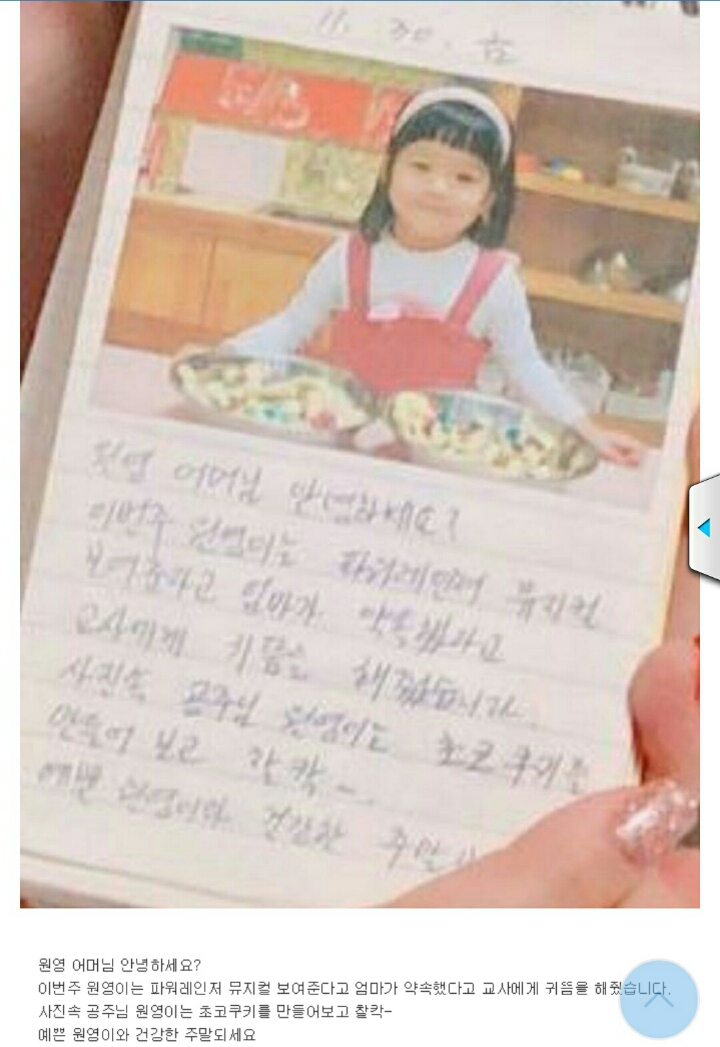 11. 30. 금
원영 어머님 안녕하세요?
이번주 원영이는 파워레인저 뮤지컬
보여준다고 엄마가 약속했다고
교사에게 귀뜸을 해줬습니다.
사진속 공주님 원영이는 초코쿠키를
만들어 보고 찰칵~.
예쁜 원영이와 건강한 주말
원영 어머님 안녕하세요?
이번주 원영이는 파워레인저 뮤지컬 보여준다고 엄마가 약속했다고 교사에게 귀뜸을 해줬습니다.
사진속 공주님 원영이는 초코쿠키를 만들어보고 찰칵~
예쁜 원영이와 건강한 주말되세요